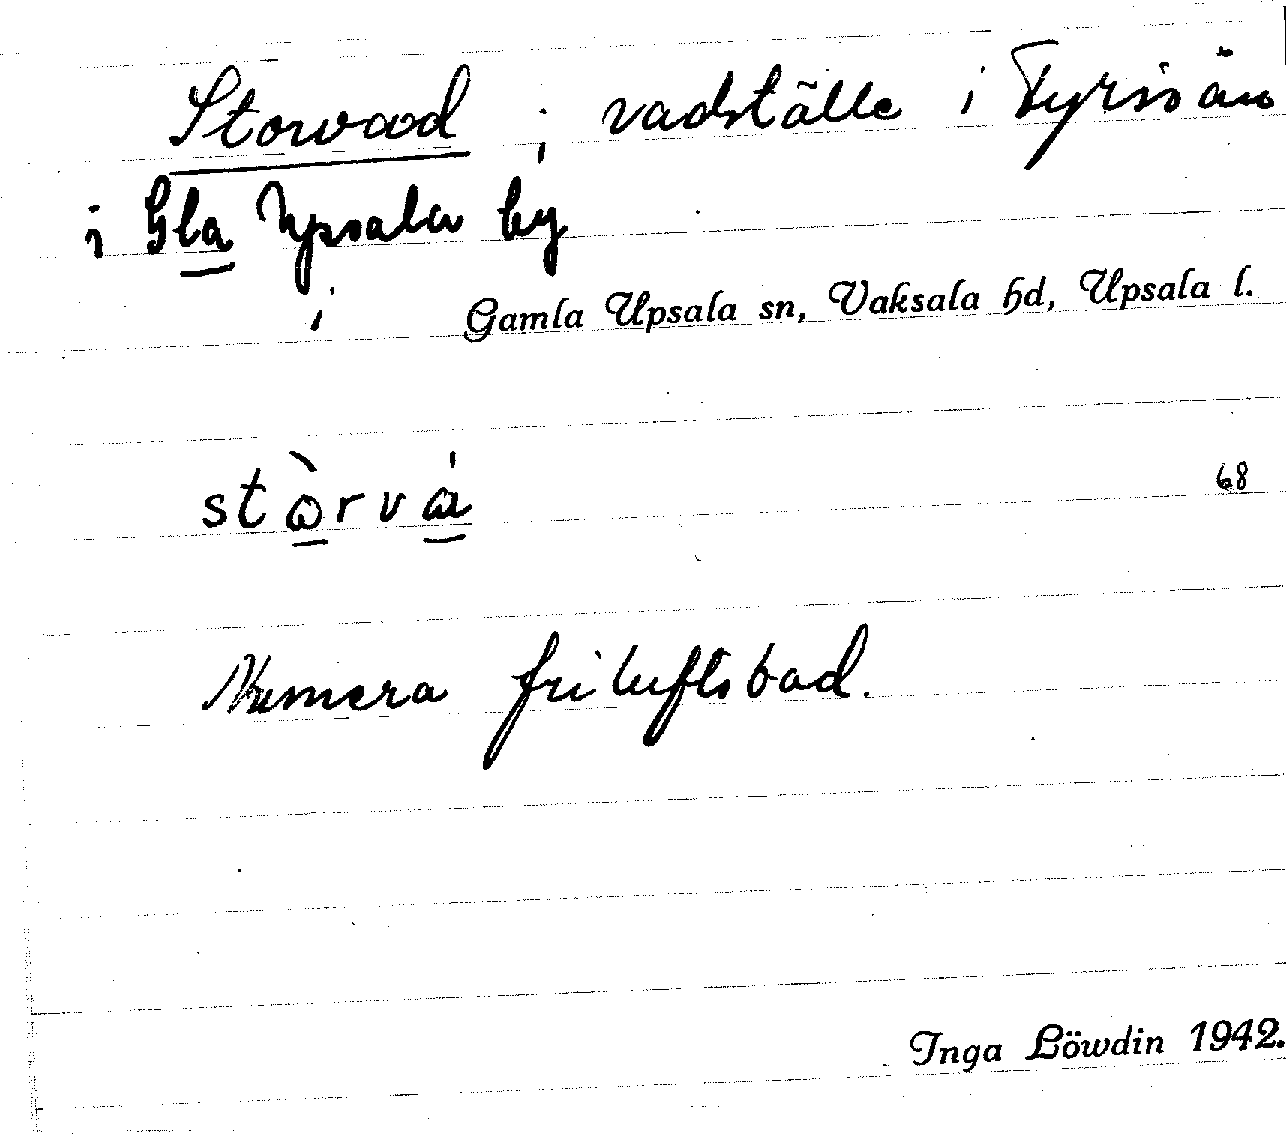 Storvad ; vadställe i Fyrisån
i Gla Upsala by
Gamla Upsala sn, Vaksala hd, Upsala l.
68
Numera friluftsbad.
Inga Löwdin 1942.